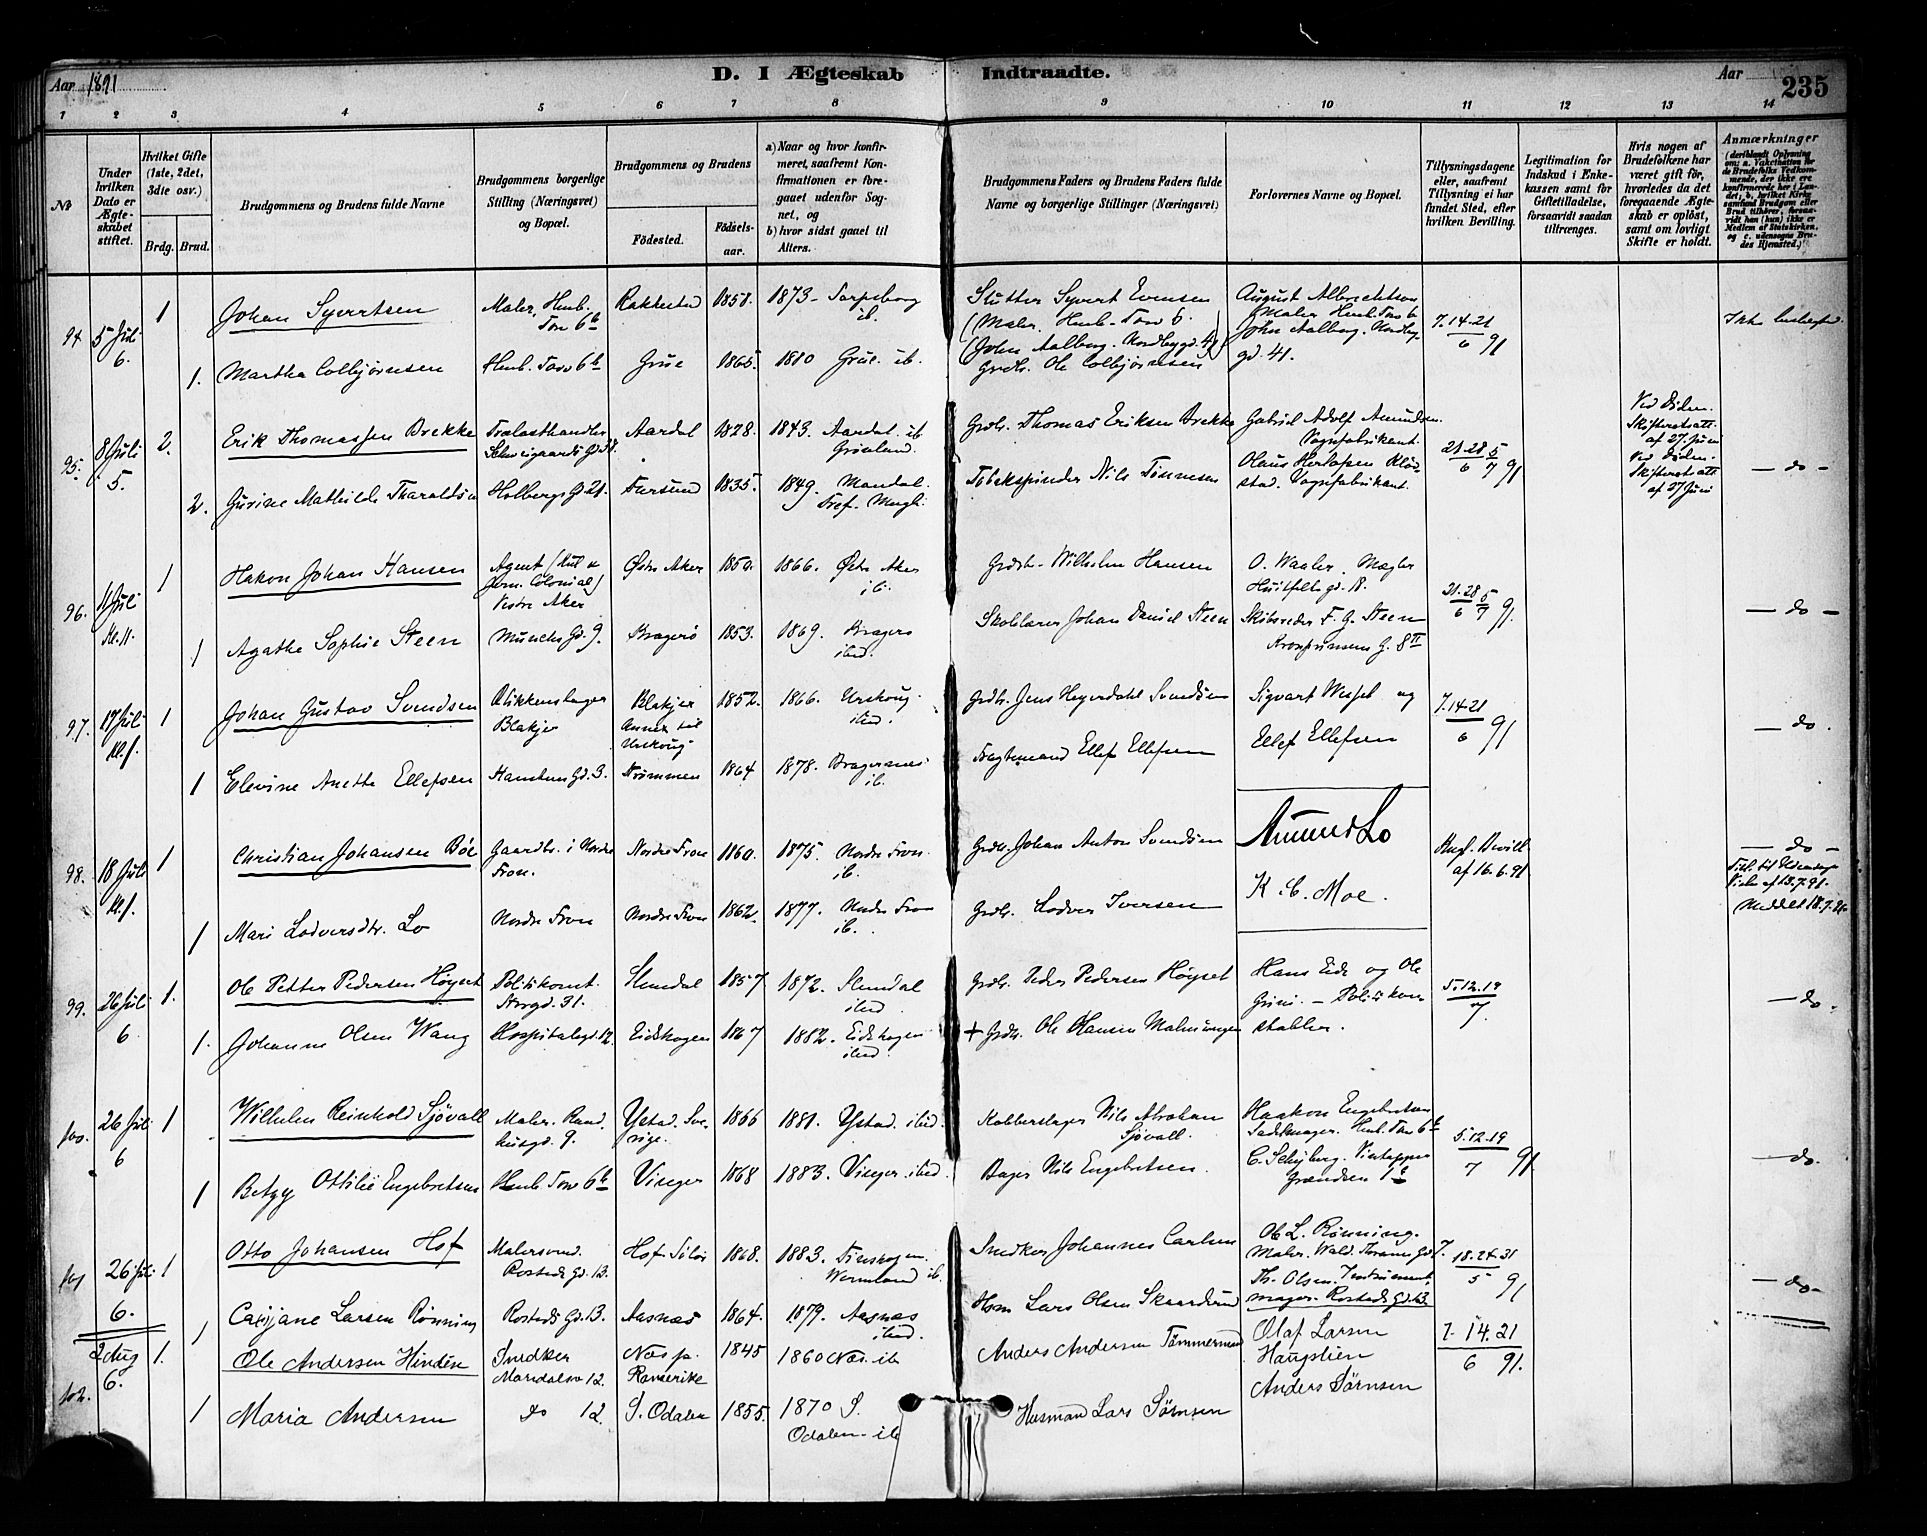 Aar 1891
D. I Ægteskab Indtraadte.
Aar
235
1 2 3 4 5 6 7 8 9 10 11 12 13 14
No
Under hvilken Dato er Ægteskabet stiftet.
Hvilket Gifte (1ste, 2det, 3die osv.)
Brdg. Brud.
Brudgommens og Brudens fulde Navne
Brudgommens borgerlige Stilling (Næringsvei) og Bopæl.
Brudgommens og Brudens
Födested.
Födselsaar.
a) Naar og hvor konfirmeret, saafremt Konfirmationen er foregaaet udenfor Sognet, og
b) hvor sidst gaaet til Alters.
Brudgommens Faders og Brudens Faders fulde Navne og borgerlige Stillinger (Næringsvei)
Forlovernes Navne og Bopæl.
Tillysningsdagene eller, saafremt Tillysning ei har fundet Sted, efter hvilken Bevilling.
Legitimation for Indskud i Enkekassen samt for Giftetilladelse, forsaavidt saadan tiltrænges.
Hvis nogen af Brudefolkene har været gift för, hvorledes da det foregaaende Ægteskab er oplöst, samt om lovligt Skifte er holdt.
Anmærkninger
94 5 Juli 6. 1 Johan Syvertsen Maler, Henb. Tov 6b Rakkestad 1858. 1873 - Sarpsborg ib.
Slutter Syvert Evensen
August Albrechtson
Maler Henb. Tov 6
John Aalberg. Nordbygd. 41.
7.14.21/6 91
1. Martha Colbjörnsen Henb. Tov 6b Grue 1865. 1880 Grue. ib.
(Maler. Henb. Tov 6.
(John Aalberg. Nordbygd. 41)
Grdbr. Ole Colbjörnsen
95. 8 Juli 5. 2. Erik Thomassen Brekke Trælasthandler Schweigaards Gd. Aardal 1828. 1843. Aardal. ib Grönland.
Grdbr. Thomas Eriksen Brekke
Gabriel Adolf Amundsen. Vognfabrikant.
21.28/6 5/7 91
Ved Döden. Skifteratt. af 27. Juni
2. Gurine Mathilde Tharaldsen Holbergs Gd 21. Farsund 1835. 1849. Mandal. Tref. Mngh.
Tobakspinder Nils Tönnesen
Olaus Herlofsen Vognfabrikant.
Ved Döden. Skifteratt af 27 Juni
— do —
96. 11 Juli kl. 11. 1 Hakon Johan Hansen Agent (Kul & Jern. Colonial) Vestre Aker Östre Aker 1850. 1866. Östre Aker ib.
Grdbr. Wilhelm Hansen
O. Waaler. Mægler Huitfeldts gd. 18.
21.28/6 5/7 91.
— do —
1 Agathe Sophie Steen Munchs Gd. 9. Kragerö 1853. 1869. Kragerö ibid.
Skolelærer Johan Daniel Steen
Skibsreder F. G. Steen Kronprinsens G. 8 II
97. 17 Juli kl. 1. 1 Johan Gustav Svendsen Blikkenslager Blakjer Blakjer Annex til Urskoug 1852. 1866. Urskoug. ibid.
Grdbr. Jens Heyerdahl Svendsen
Sigvart Wessel og
7.14.21/6 91
— do.
1 Elevine Anette Ellefsen Hambros Gd. 3. Strömmen 1864 1878. Bragernes ib.
Fragtemand Ellef Ellefsen
Ellef Ellefsen
98. 18 Juli kl. 1. 1 Christian Johansen Böe Gaardbr. i Nordre Fron. Nordre Fron 1860. 1875. Nordre Fron. ib.
Grdbr. Johan Anton Svendsen
Amund Lo
Kngl. Bevill. af 16.6.91
— do —
1 Mari Lodversdtr. Lo Nordre Fron Nordre Fron 1862. 1877. Nordre Fron ib.
Grdbr. Lodver Iversen
K. C. Moe.
Meddelt 18.7.91
99. 26 Juli 6 1. Ole Petter Pedersen Höyset Politikonst. Storgd. 31. Slemdal 1857 1872. Slemdal ibid.
Grdbr. Peder Pedersen Höyset
Hans Eide og Ole Grini. — Politikonstabler.
5.12.19/7.
— do.
1. Johanne Olsen Wang Hospitalsgd. 12. Eidskogen 1867 1882. Eidskogen ibid.
+ Grdbr. Ole Hansen
100. 26 Juli 6 1 Wilhelm Reinhold Sjövall Maler. Raadhusgd. 9. Ystad. Sverige. 1866 1881. Ystad. ibid.
Kobberslager Nils Abraham Sjövall.
Haakon Engebretsen Sadelmager. Henb. Tov 6b
5.12.19/7 91.
— do.
1 Betzy Ottilie Engebretsen Henb. Tov 6b Vinger 1868 1883. Vinger. ibid.
Bager Nils Engebretsen.
C. Schyberg. Vintapper Grændsen 1
101 26 Juli 6. 1 Otto Johansen Hof Malersvend. Rosteds Gd. 13. Hof. Solör 1868. 1883. Finskogen. Wermland ib.
Snedker Johannes Carlsen
Ole L. Rönning. Maler. Wald. Thranes Gd 7.
18.24.31/5 91
— do —
1 Larsen Rönning Rosteds Gd. 13. Aasnæs 1864. 1879. Aasnæs ibid.
Hsm Lars Olsen
Th. Olsen. Instrumentmager. Rosteds Gd 13.
102. 2 Aug 6. 1. Ole Andersen Hinden Snedker Maridalsv 12. Næs p. Romerike 1845 1860 Næs. ib
Anders Andersen Tömmermand
Olaf Larsen Haugstien
7.14.21/6 91.
1 Maria Andersen do 12. S. Odalen 1855. 1870 S. Odalen. ib
Husmand Lars Sörnsen
Anders Sörnsen